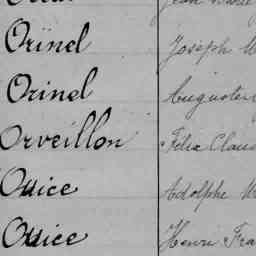 Orinel Joseph
Orinel Auguste
Orveillon Félix Claud
Ouice Adolphe
Ouice Henri Fra